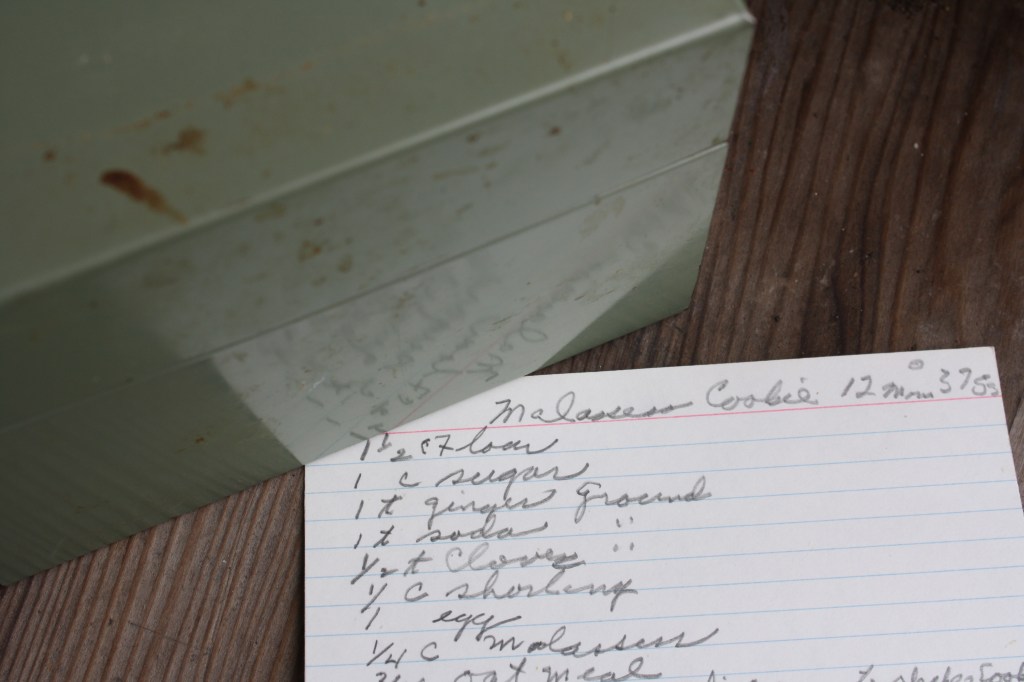 Malassess Cookie 12 min 375
1 1/2 c Floar
1 c sugar
1 t ginger Ground
1 t soda "
1/2 t Cloves "
c shorting
1 egg
1/4 c malassess
oat meal